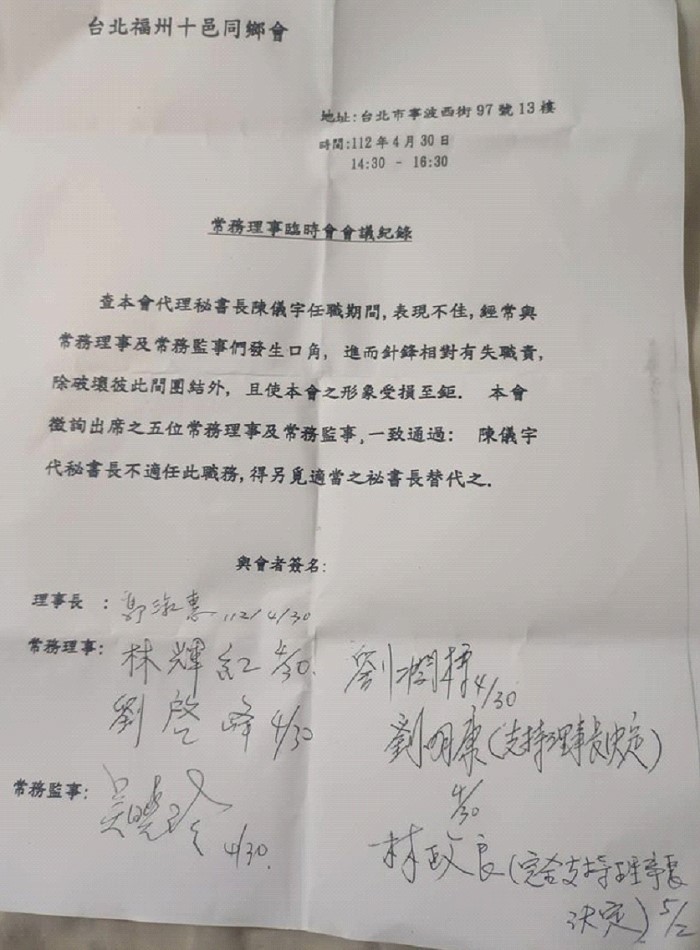 台北福州十邑同鄉會
地址:台北市寧波西街97號13樓
時間:112年4月30日
14:30 - 16:30
常務理事臨時會會議紀錄
查本會代理秘書長陳儀宇任職期間,表現不佳,經常與
常務理事及常務監事們發生口角,進而針鋒相對有失職責,
除破壞彼此間團結外,且使本會之形象受損至鉅. 本會
徵詢出席之五位常務理事及常務監事,一致通過: 陳儀宇
代秘書長不適任此職務,得另覓適當之祕書長替代之.
與會者簽名:
理事長 : 郭淑惠 112/4/30
常務理事: 林輝紅 4/30. 劉潤 4/30
劉啓峰 4/30 劉明康(支持理事長決定)
4/30
常務監事: 吳曉 4/30. 林政良(完全支持理事長
決定) 5/2